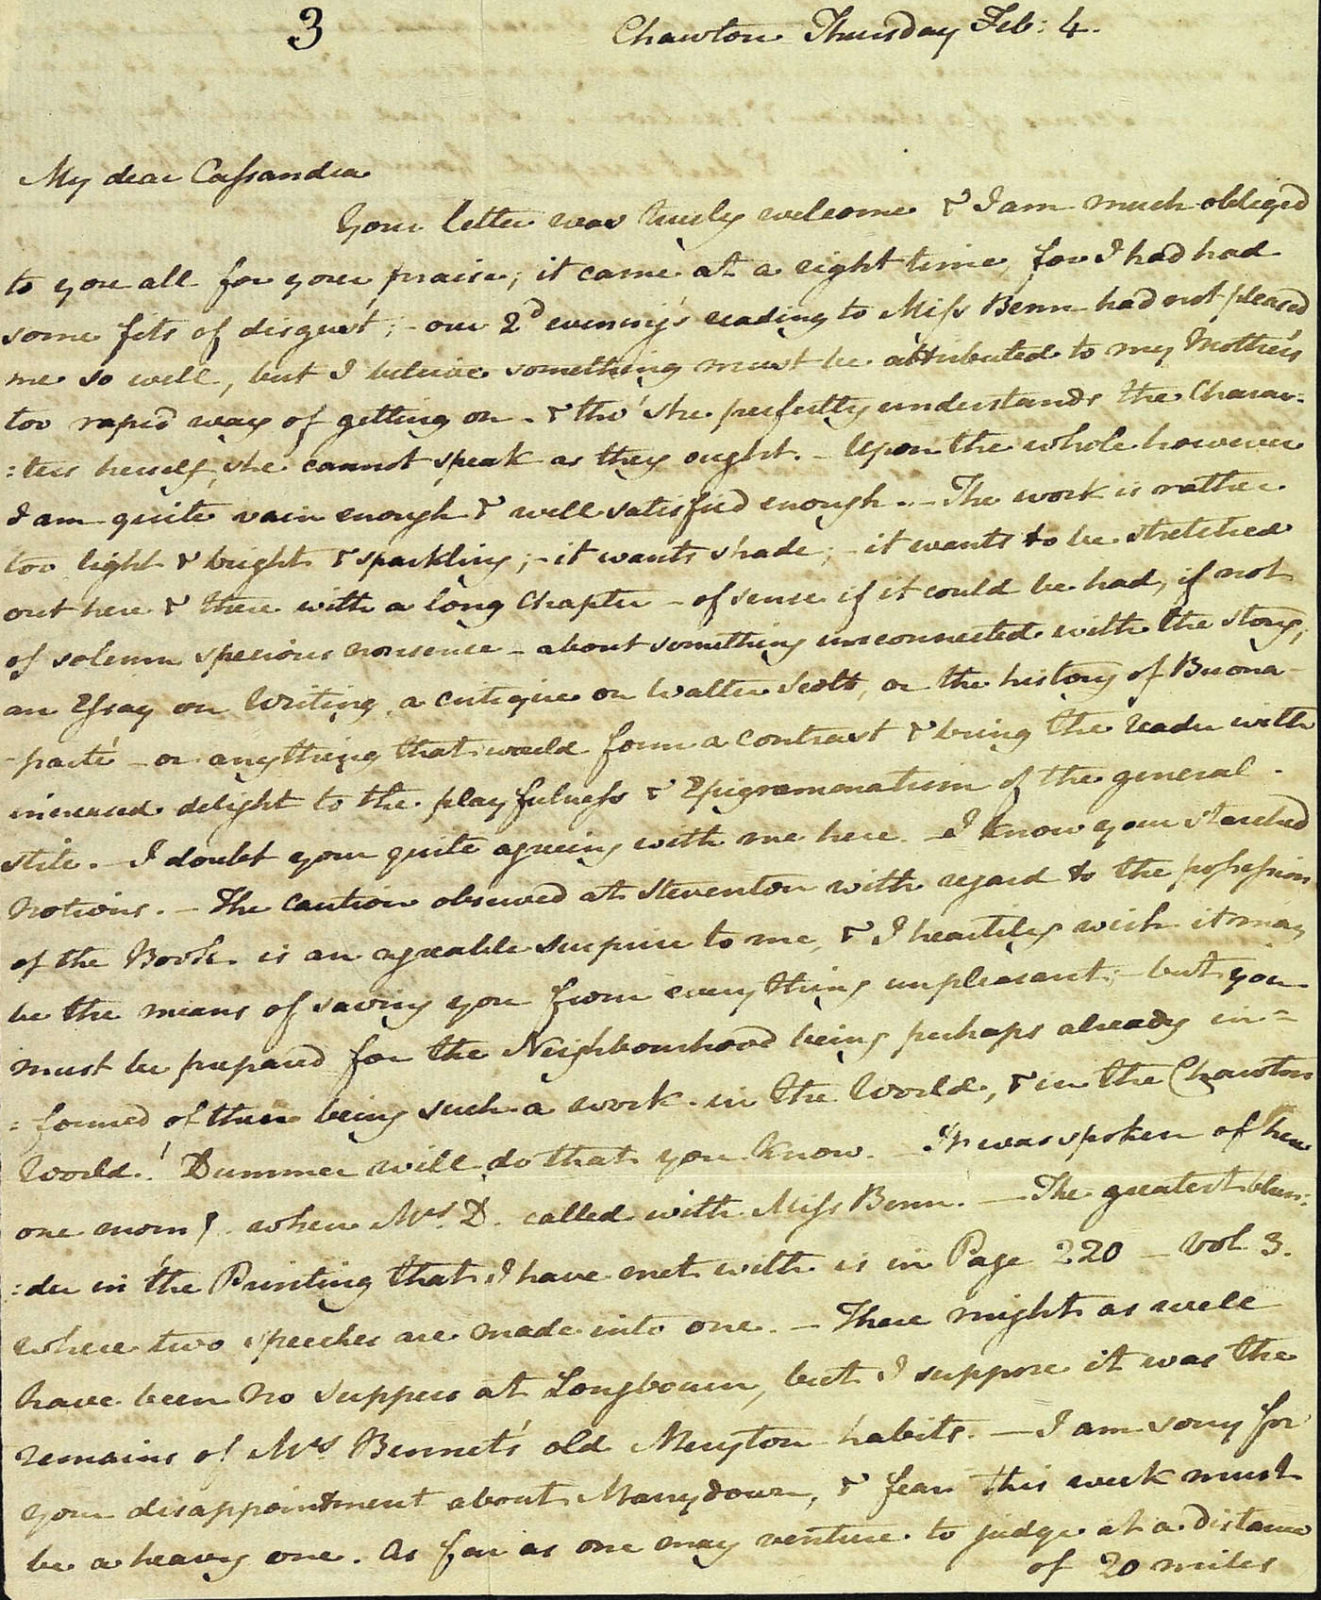 3
Chawton Thursday Feb: 4.
My dear Cassandra
Your letter was truely welcome & I am much obliged
to you all for your praise; it came at a right time, for I had had
some fits of disgust; - our 2d evening's reading to Miss Benn had not pleased
me so well, but I beleive something must be attributed to my Mother's
too rapid way of getting on - & tho' she perfectly understands the Charac:
:ters herself, she cannot speak as they ought. - Upon the whole however
I am quite vain enough & well satisfied enough. - The work is rather
too light & bright & sparkling; - it wants shade; - it wants to be stretched
out here & there with a long Chapter - of sense if it could be had, if not
of solemn specious nonsense - about something unconnected with the story;
an Essay on Writing, a critique on Walter Scott, or the history of Buona-
-parté - or anything that would form a contrast & bring the reader with
increased delight to the playfulness & Epigrammatism of the general
stile. - I doubt your quite agreeing with me here - I know your starched
Notions. - The caution observed at Steventon with regard to the possession
of the Book is an agreable surprise to me, & I heartily wish it may
be the means of saving you from everything unpleasant; - but you
must be prepared for the Neighbourhood being perhaps already in=
:formed of there being such a work in the World, & in the Chawton
World! Dummer will do that you know. - It was spoken of here
one morng when Mrs. D. called with Miss Benn. - The greatest blun:
:der in the Printing that I have met with is in Page 220 - Vol 3.
where two speeches are made into one. - There might as well
have been no suppers at Longbourn, but I suppose it was the
remains of Mrs Bennet's old Meryton habits. - I am sorry for
your disappointment about Manydown, & fear this week must
be a heavy one. As far as one may venture to judge at a distance
of 20 miles